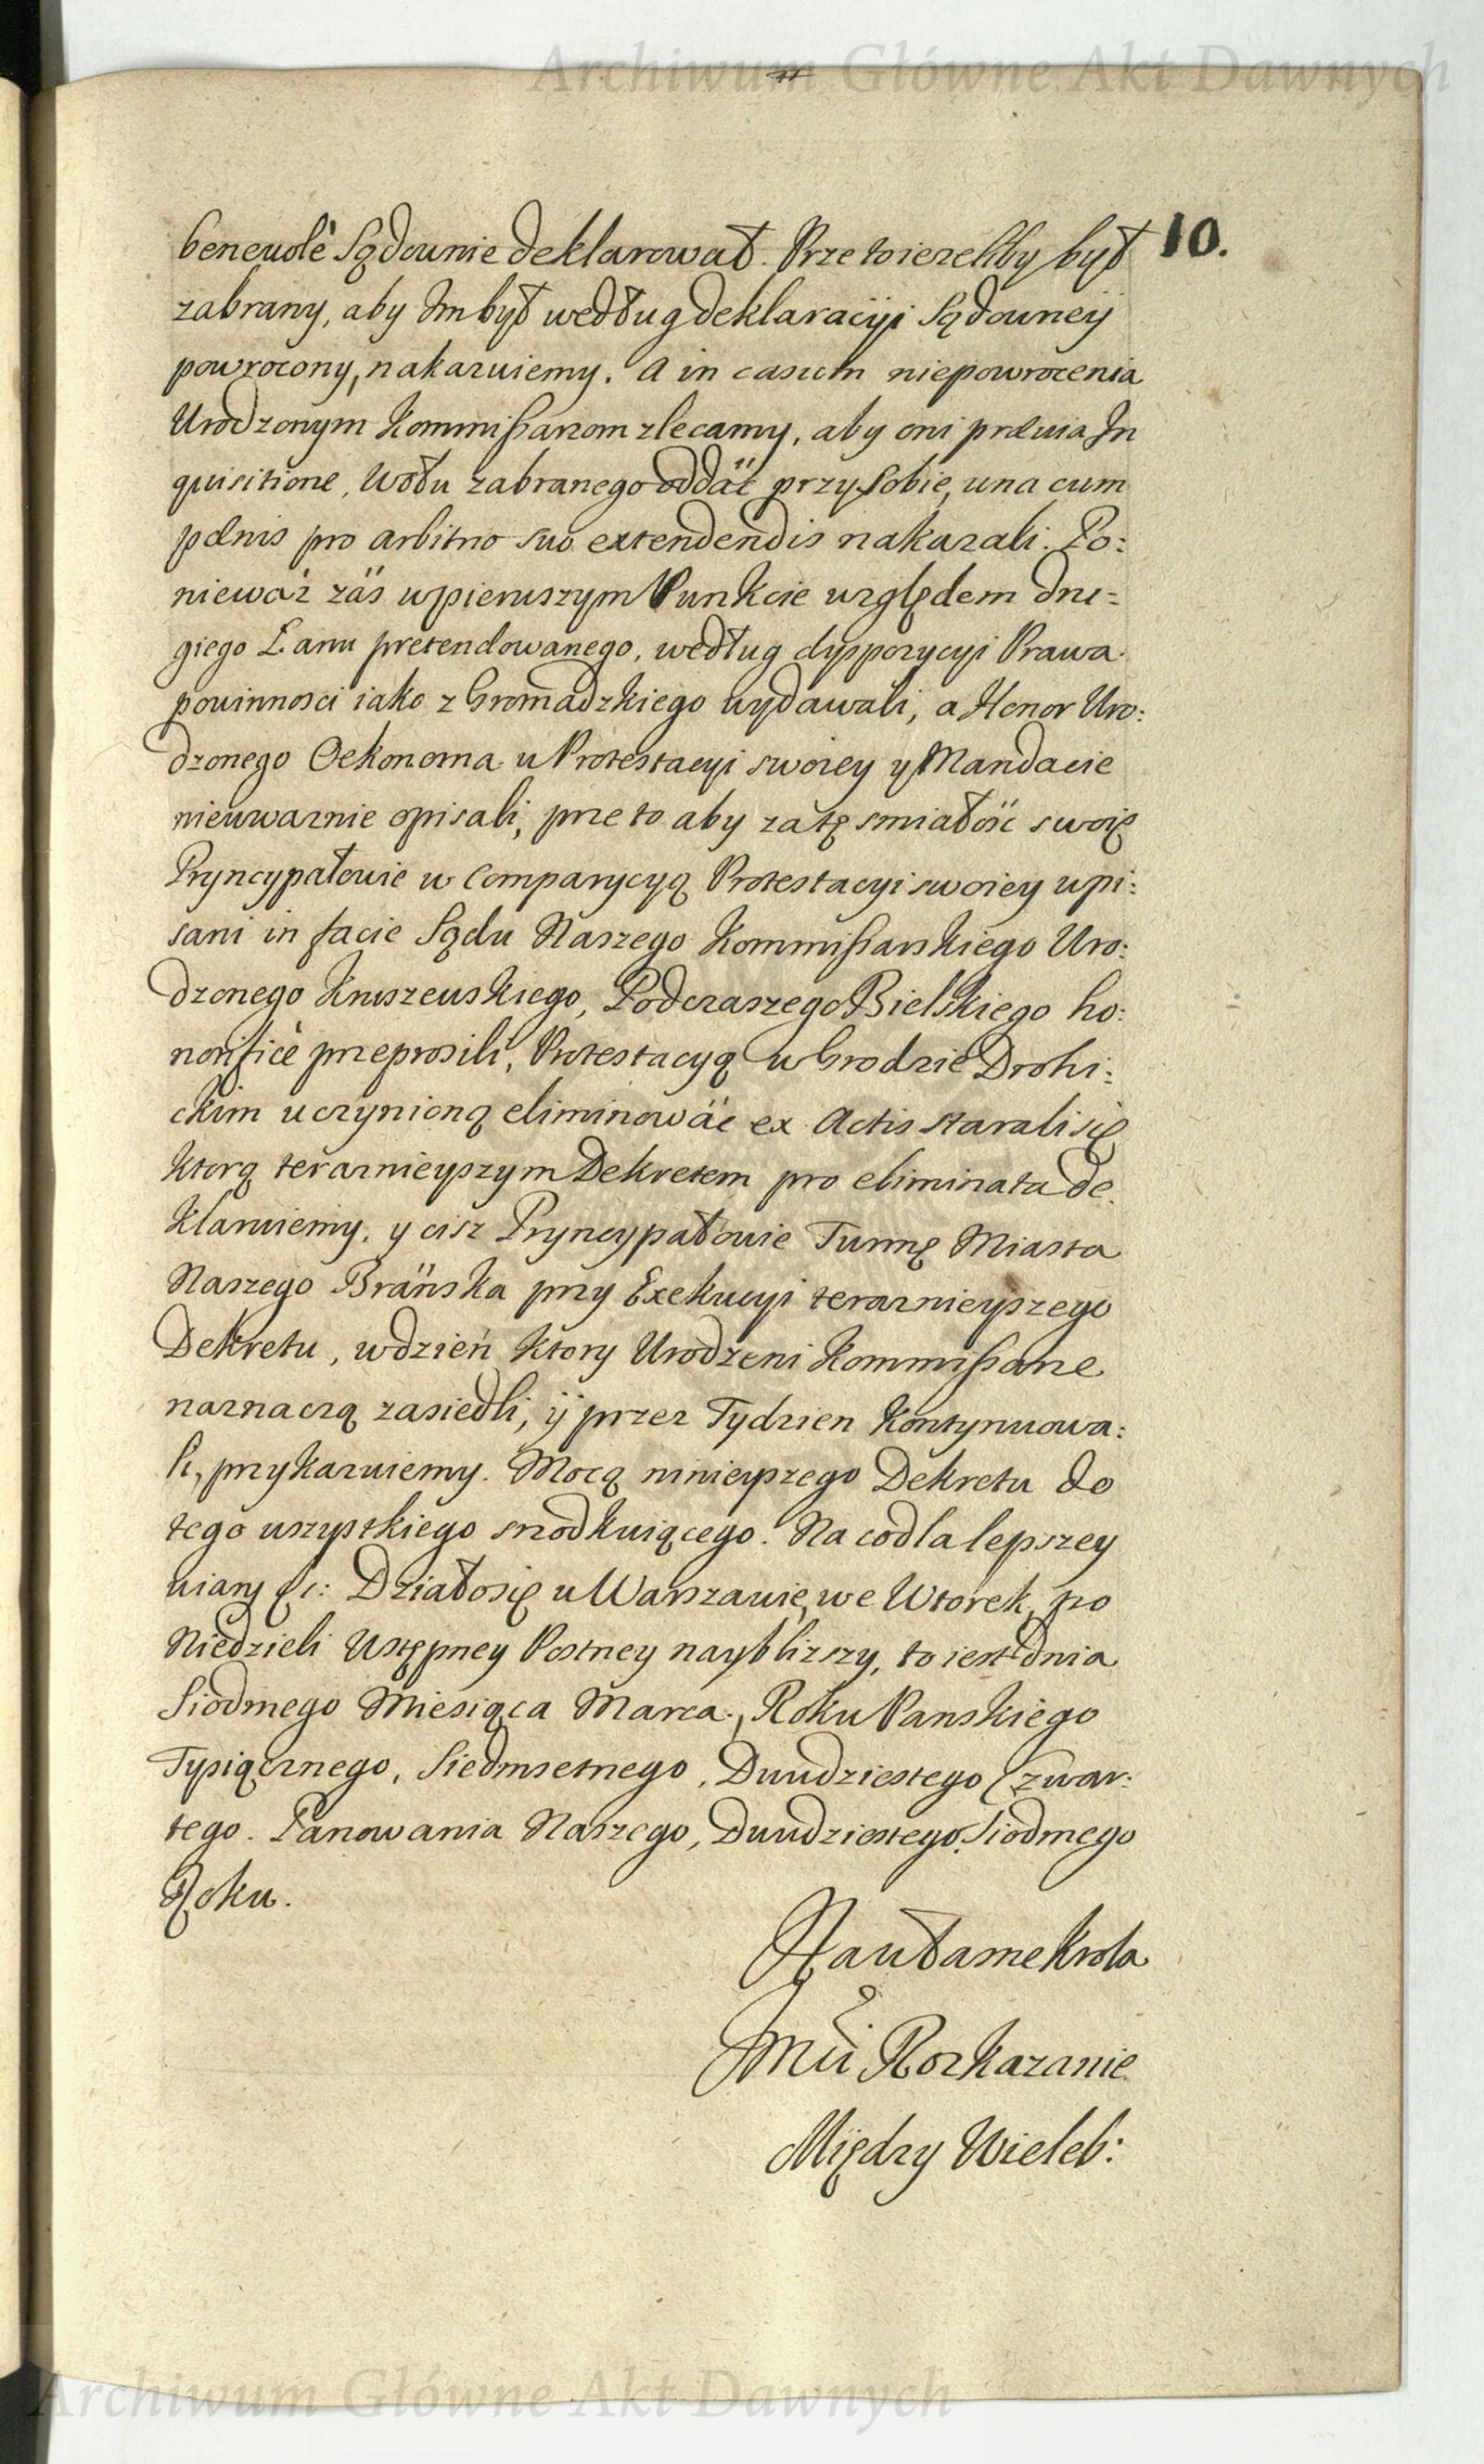 Archiwum Główne Akt Dawnych
10.
benevolè Sądownie deklarował. Przeto iezeliby był
zabrany, aby Im był według deklaracÿi Sądowney
powrocony, nakazuiemy. A in casum niepowrocenia
Urodzonym Kommissarzom zlecamy, aby oni prævia In
quisitione, Wołu zabranego oddäć przy sobie, una cum
pœnis pro arbitrio suo extendendis nakazali. Po:
niewáz zäs w pierwszym Punkcie względem dru=
giego Łanu pretendowanego, według dyspozycyi Prawa
powinnosci iako z Gromadzkiego wydawali, a Honor Uro:
dzonego Oekonoma w Protestacyi swoiey y Mandacie
nieuwaznie opisali, przeto aby za tę smiałość swoię
Pryncypałowie w Comparycyą Protestacyi swoiey wpi:
sani in facie Sądu Naszego Kommissarskiego Uro:
dzonego Kruszewskiego, Podczaszego Bielskiego ho:
norificè przeprosili, Protestacyą w Grodzie Drohi:
ckim uczynioną eliminowäć ex Actis starali się
ktorą teraznieyszym Dekretem pro eliminata de
klaruiemy. y cisz Pryncypałowie Turmę Miasta
Naszego Bräńska przy Exekucyi teraznieyszego
Dekretu, w dzień ktory Urodzeni Kommissarze
naznaczą zasiedli, ÿ przez Tydzien kontynuowa:
li, przykazuiemy. Mocą ninieyszego Dekretu do
tego wszystkiego srzodkuiącego. Na co dla lepszey
wiary &c: Działo się w Warszawie, we Wtorek, po
Niedzieli Wstępney Postney naybliższy, to iest dnia
Siodmego Miesiąca Marca, Roku Panskiego
Tysiącznego, Siedmsetnego, Dwudziestego Czwar:
tego. Panowania Naszego, Dwudziestego Siodmego
Roku.
Na własne Krola
Jmci Rozkazanie
Między Wieleb:
Archiwum Główne Akt Dawnych